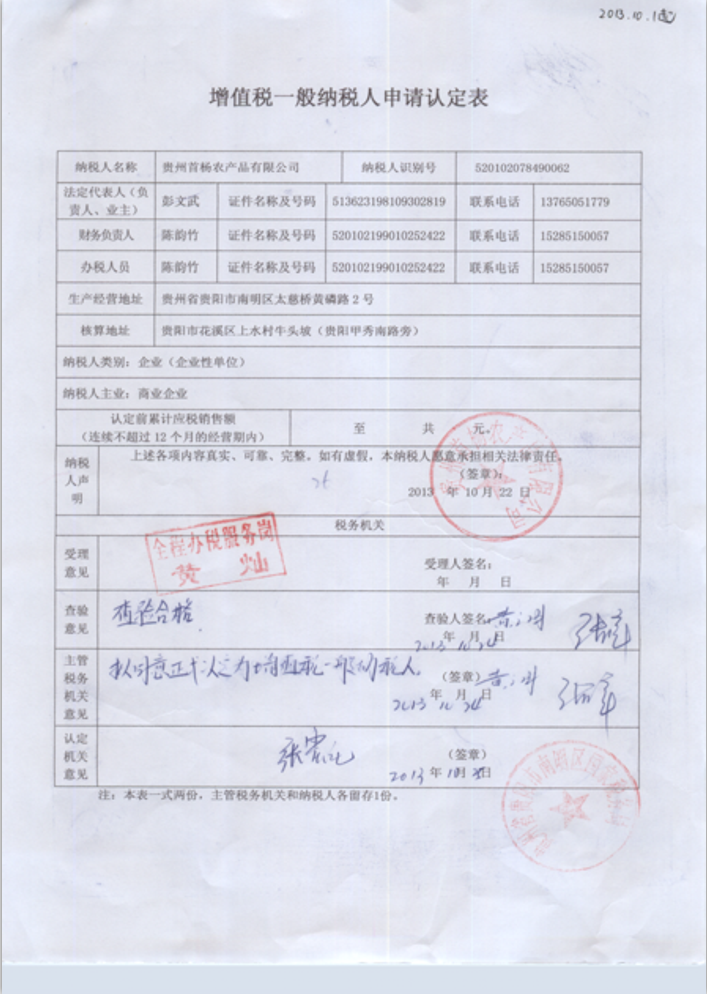 2013.10.1
增值税一般纳税人申请认定表
纳税人名称 贵州首杨农产品有限公司 纳税人识别号 520102078490062
法定代表人（负责人、业主） 彭文武 证件名称及号码 513623198109302819 联系电话 13765051779
财务负责人 陈韵竹 证件名称及号码 520102199010252422 联系电话 15285150057
办税人员 陈韵竹 证件名称及号码 520102199010252422 联系电话 15285150057
生产经营地址 贵州省贵阳市南明区太慈桥黄磷路2号
核算地址 贵阳市花溪区上水村牛头坡（贵阳甲秀南路旁）
纳税人类别：企业（企业性单位）
纳税人主业：商业企业
认定前累计应税销售额
（连续不超过12个月的经营期内） 至 共 元。
纳税人声明 上述各项内容真实、可靠、完整。如有虚假，本纳税人愿意承担相关法律责任。
（签章）：
2013 年 10 月 22 日
税务机关
全程办税服务岗
黄灿
受理意见
受理人签名：
年 月 日
查验意见 查验合格
查验人签名：
2013 年 10 月 24 日
主管税务机关意见 拟同意正式认定为增值税一般纳税人
（签章）
2013 年 10 月 24 日
认定机关意见
（签章）
2013 年 10 月 日
注：本表一式两份，主管税务机关和纳税人各留存1份。